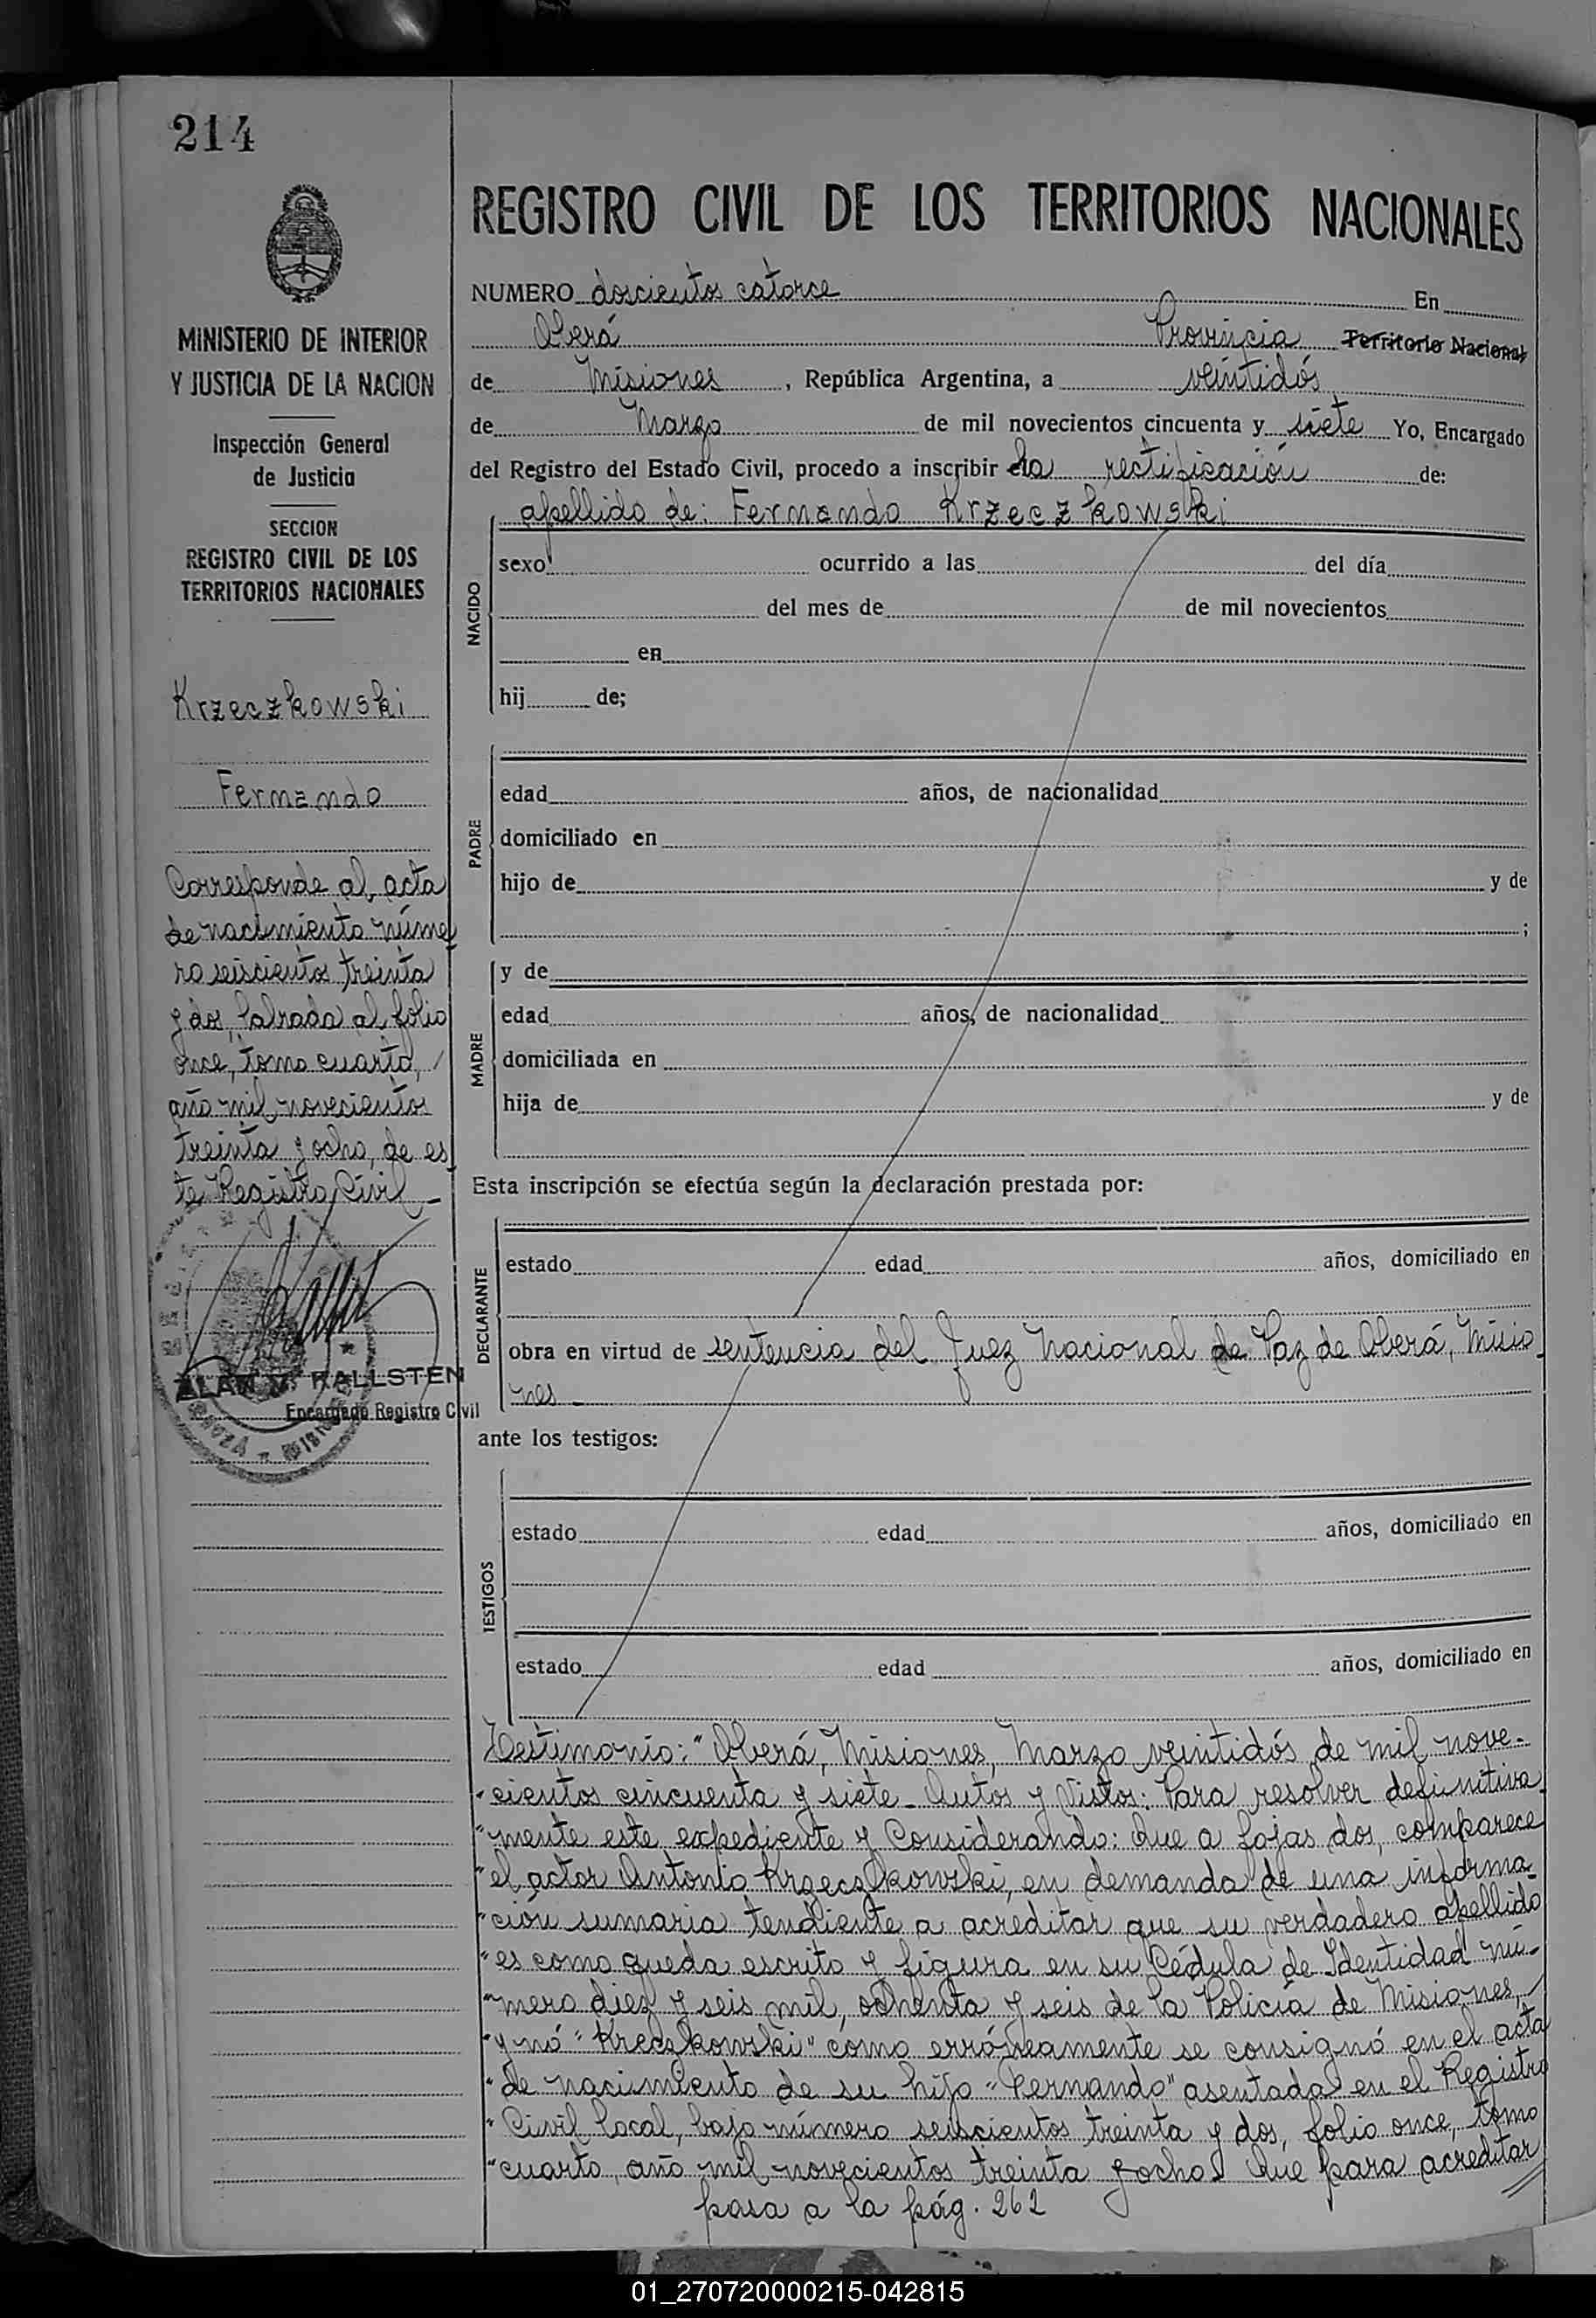 214
MINISTERIO DE INTERIOR
Y JUSTICIA DE LA NACION
Inspección General
de Justicia
SECCION
REGISTRO CIVIL DE LOS
TERRITORIOS NACIONALES
Krzeczkowski
Fernando
Corresponde al acta
de nacimiento núme
ro seiscientos treinta
y dos, labrada al folio
once, tomo cuarto,
año mil novecientos
treinta y ocho, de es
te Registro Civil -
HALLSTEN
Encargado Registro Civil
REGISTRO CIVIL DE LOS TERRITORIOS NACIONALES
NUMERO doscientos catorce En
Oberá Provincia Territorio Nacional
de Misiones, República Argentina, a veintidós
de Marzo de mil novecientos cincuenta y siete Yo, Encargado
del Registro del Estado Civil, procedo a inscribir la rectificación de:
apellido de: Fernando Krzeczkowski
NACIDO
sexo ocurrido a las del día
del mes de de mil novecientos
en
hij de;
PADRE
edad años, de nacionalidad
domiciliado en
hijo de y de
;
MADRE
y de
edad años, de nacionalidad
domiciliada en
hija de y de
Esta inscripción se efectúa según la declaración prestada por:
DECLARANTE
estado edad años, domiciliado en
obra en virtud de sentencia del Juez Nacional de Paz de Oberá, Misio
nes -
ante los testigos:
TESTIGOS
estado edad años, domiciliado en
estado edad años, domiciliado en
Testimonio: "Oberá, Misiones, Marzo veintidós de mil nove-
"cientos cincuenta y siete - Autos y Vistos: Para resolver definitiva
"mente este expediente y Considerando: Que a fojas dos, comparece
"el actor Antonio Krzeczkowski, en demanda de una informa-
"ción sumaria tendiente a acreditar que su verdadero apellido
"es como queda escrito y figura en su Cédula de Identidad nú-
"mero diez y seis mil, ochenta y seis de la Policía de Misiones,
"y nó "Kreczkowski" como erróneamente se consignó en el acta
"de nacimiento de su hijo "Fernando" asentada en el Registro
"Civil local, bajo número seiscientos treinta y dos, folio once, tomo
"cuarto, año mil novecientos treinta y ocho. Que para acreditar
pasa a la pág. 262
01_270720000215-042815